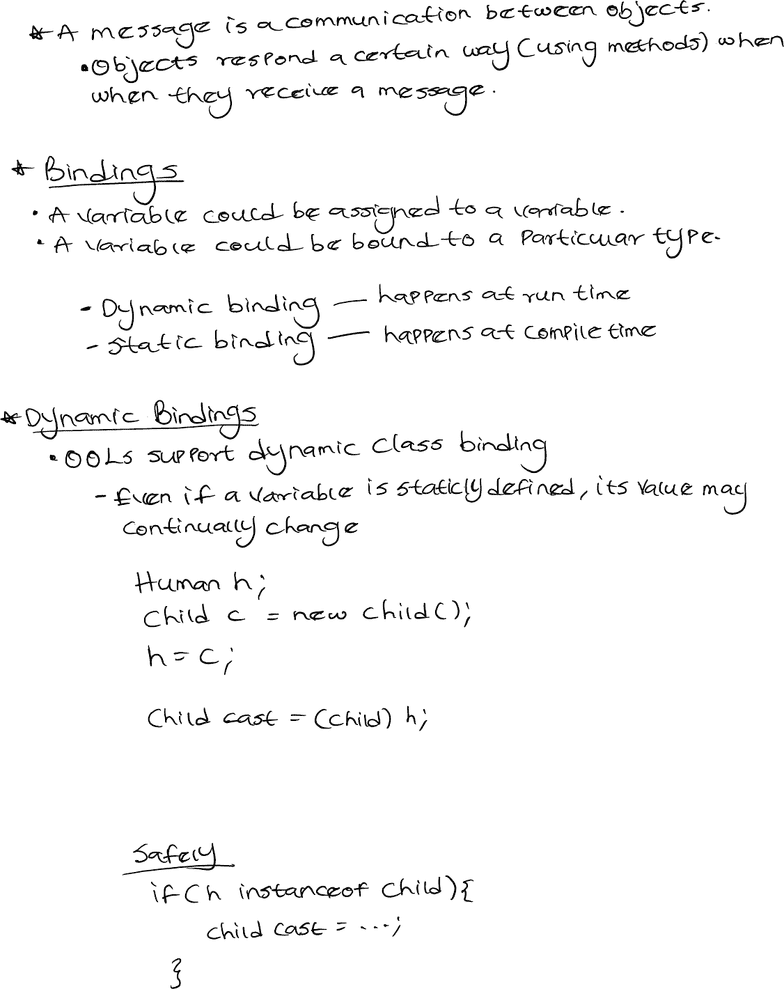 * A message is a communication between objects.
• Objects respond a certain way (using methods) when
when they receive a message.
* Bindings
• A variable could be assigned to a variable.
• A variable could be bound to a particular type.
- Dynamic binding — happens at run time
- Static binding — happens at compile time
* Dynamic Bindings
• OOLs support dynamic class binding
- Even if a variable is staticly defined, its value may
continually change
Human h;
Child c = new Child();
h = c;
Child cast = (Child) h;
Safely
if (h instanceof Child){
Child cast = ...;
}